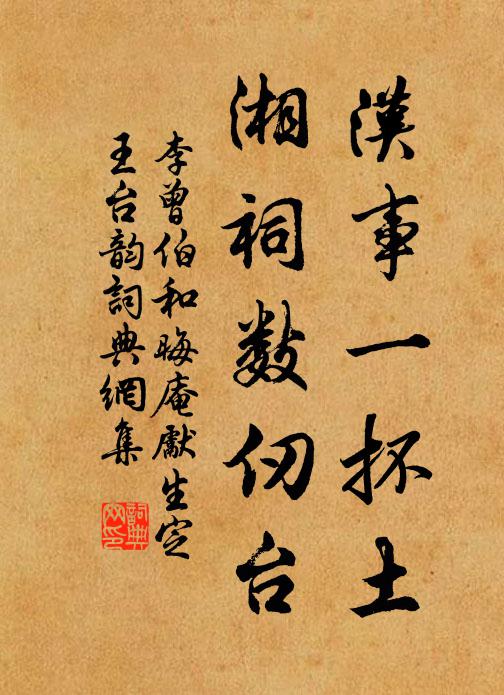 漢事一抔土
湘祠数仞台
李曾伯和晦庵獻生定
王台韵詞典網集
詞典
网印